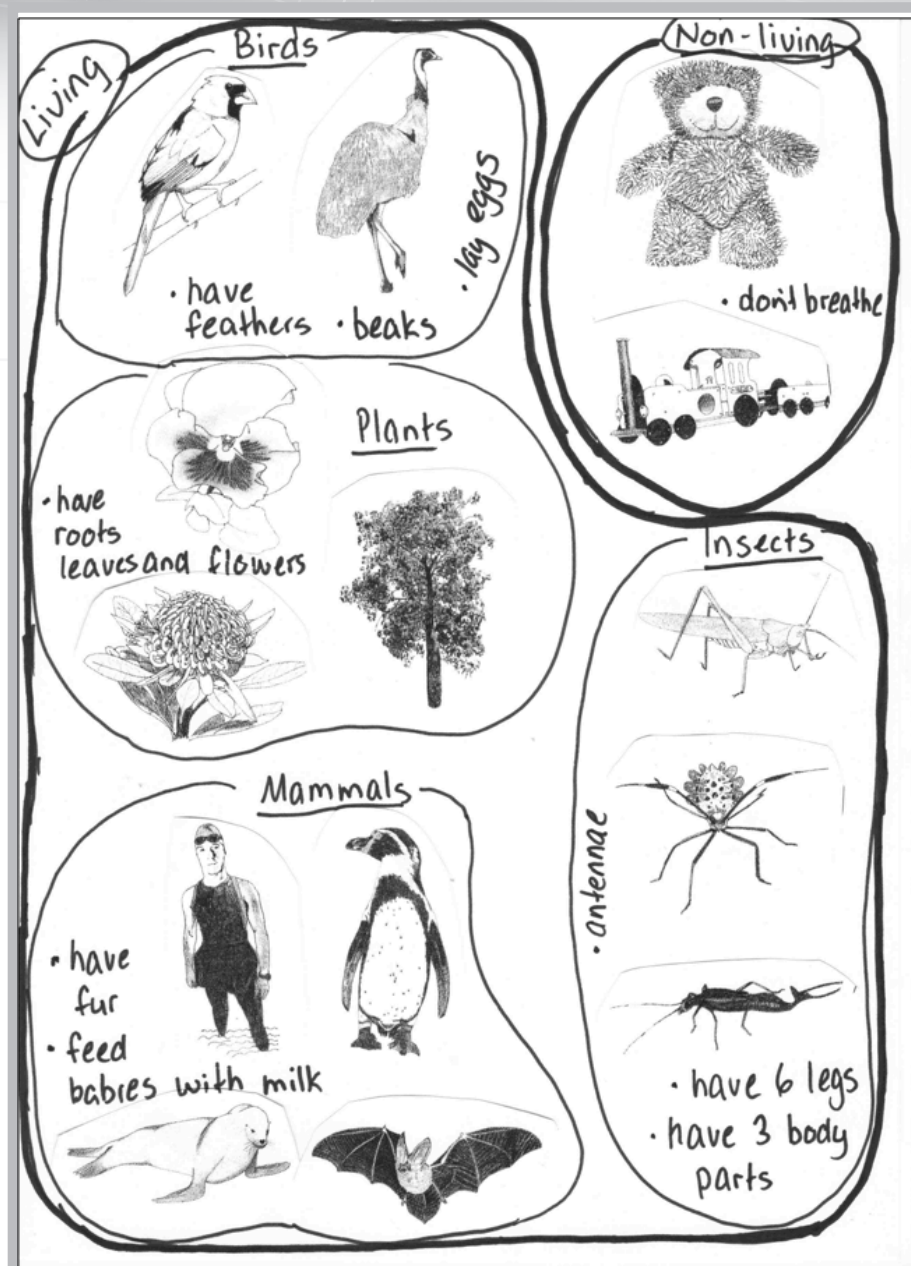 Living
Birds
• lay eggs
• have
feathers
• beaks
Non-living
• don't breathe
Plants
• have
roots
leaves and flowers
Insects
• antennae
• have 6 legs
• have 3 body
parts
Mammals
• have
fur
• feed
babies with milk